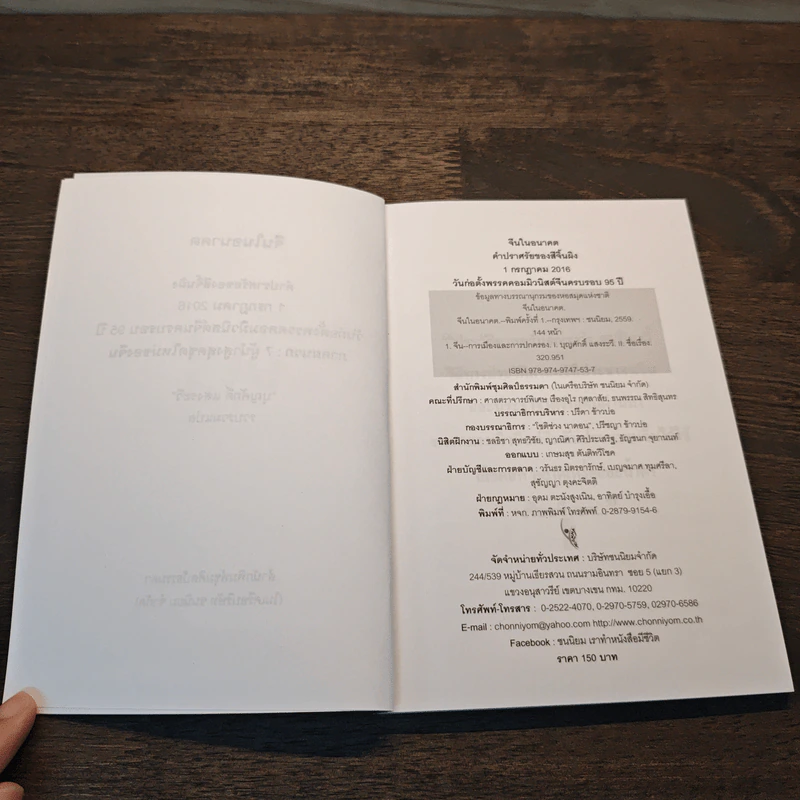 จีนในอนาคต
คำปราศรัยของสีจิ้นผิง
1 กรกฎาคม 2016
วันก่อตั้งพรรคคอมมิวนิสต์จีนครบรอบ 95 ปี
ข้อมูลทางบรรณานุกรมของหอสมุดแห่งชาติ
จีนในอนาคต.
จีนในอนาคต.--พิมพ์ครั้งที่ 1.--กรุงเทพฯ : ชนนิยม, 2559.
144 หน้า
1. จีน--การเมืองและการปกครอง. I. บุญศักดิ์ แสงระวี. II. ชื่อเรื่อง.
320.951
ISBN 978-974-9747-53-7
สำนักพิมพ์ชุมศิลป์ธรรมดา (ในเครือบริษัท ชนนิยม จำกัด)
คณะที่ปรึกษา : ศาสตราจารย์พิเศษ เรืองอุไร กุศลาสัย, ธนพรรณ สิทธิสุนทร
บรรณาธิการบริหาร : ปรีดา ข้าวบ่อ
กองบรรณาธิการ : "โชติช่วง นาดอน", ปรัชญา ข้าวบ่อ
นิสิตฝึกงาน : ชลธิชา สุทธวิชัย, ญาณิศา ศิริประเสริฐ, ธัญชนก จุยานนท์
ออกแบบ : เกษมสุข ตันติทวีโชค
ฝ่ายบัญชีและการตลาด : วรันธร มิตรอารักษ์, เบญจมาศ ทุมศรีลา,
สุชัญญา ดุงคะจิตติ
ฝ่ายกฎหมาย : อุดม ตะนังสูงเนิน, อาทิตย์ บำรุงเอื้อ
พิมพ์ที่ : หจก. ภาพพิมพ์ โทรศัพท์. 0-2879-9154-6
จัดจำหน่ายทั่วประเทศ : บริษัทชนนิยมจำกัด
244/539 หมู่บ้านเธียรสวน ถนนรามอินทรา ซอย 5 (แยก 3)
แขวงอนุสาวรีย์ เขตบางเขน กทม. 10220
โทรศัพท์-โทรสาร : 0-2522-4070, 0-2970-5759, 02970-6586
E-mail : chonniyom@yahoo.com http://www.chonniyom.co.th
Facebook : ชนนิยม เราทำหนังสือมีชีวิต
ราคา 150 บาท